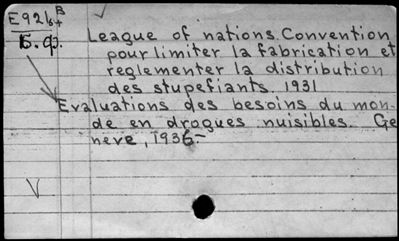 League of nations. Convention
pour limiter la fabrication et
reglementer la distribution
des stupefiants. 1931
Evaluations des besoins du mon-
de en drogues nuisibles. Ge
neve, 1936.-